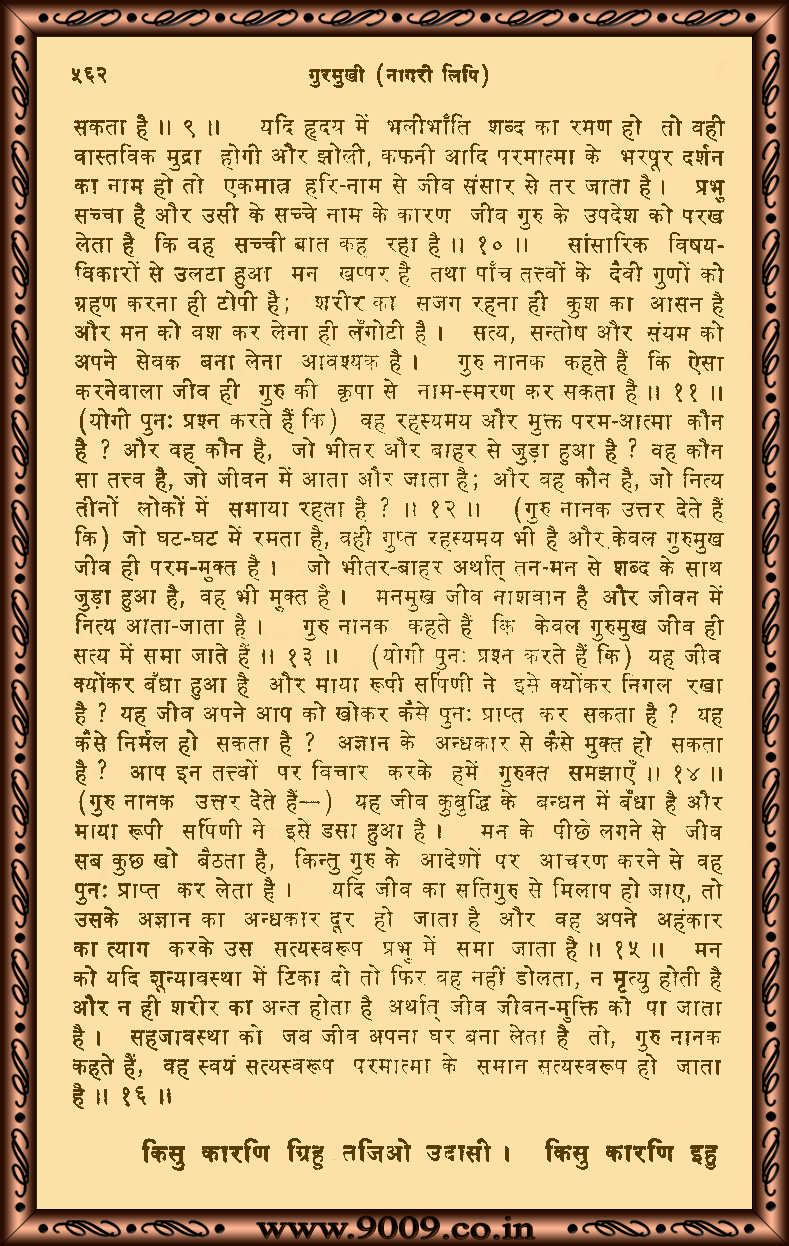 ५६२ गुरमुखी (नागरी लिपि)
सकता है ॥ ९ ॥ यदि हृदय में भलीभाँति शब्द का रमण हो तो वही
वास्तविक मुद्रा होगी और झोली, कफनी आदि परमात्मा के भरपूर दर्शन
का नाम हो तो एकमात्र हरि-नाम से जीव संसार से तर जाता है । प्रभु
सच्चा है और उसी के सच्चे नाम के कारण जीव गुरु के उपदेश को परख
लेता है कि वह सच्ची बात कह रहा है ॥ १० ॥ सांसारिक विषय-
विकारों से उलटा हुआ मन खप्पर है तथा पाँच तत्त्वों के दैवी गुणों को
ग्रहण करना ही टोपी है; शरीर का सजग रहना ही कुश का आसन है
और मन को वश कर लेना ही लँगोटी है । सत्य, सन्तोष और संयम को
अपने सेवक बना लेना आवश्यक है । गुरु नानक कहते हैं कि ऐसा
करनेवाला जीव ही गुरु की कृपा से नाम-स्मरण कर सकता है ॥ ११ ॥
(योगी पुनः प्रश्न करते हैं कि) वह रहस्यमय और मुक्त परम-आत्मा कौन
है ? और वह कौन है, जो भीतर और बाहर से जुड़ा हुआ है ? वह कौन
सा तत्त्व है, जो जीवन में आता और जाता है; और वह कौन है, जो नित्य
तीनों लोकों में समाया रहता है ? ॥ १२ ॥ (गुरु नानक उत्तर देते हैं
कि) जो घट-घट में रमता है, वही गुप्त रहस्यमय भी है और केवल गुरुमुख
जीव ही परम-मुक्त है । जो भीतर-बाहर अर्थात् तन-मन से शब्द के साथ
जुड़ा हुआ है, वह भी मुक्त है । मनमुख जीव नाशवान है और जीवन में
नित्य आता-जाता है । गुरु नानक कहते हैं कि केवल गुरुमुख जीव ही
सत्य में समा जाते हैं ॥ १३ ॥ (योगी पुनः प्रश्न करते हैं कि) यह जीव
क्योंकर बँधा हुआ है और माया रूपी सर्पिणी ने इसे क्योंकर निगल रखा
है ? यह जीव अपने आप को खोकर कैसे पुनः प्राप्त कर सकता है ? यह
कैसे निर्मल हो सकता है ? अज्ञान के अन्धकार से कैसे मुक्त हो सकता
है ? आप इन तत्त्वों पर विचार करके हमें गुरुक्त समझाएँ ॥ १४ ॥
(गुरु नानक उत्तर देते हैं—) यह जीव कुबुद्धि के बन्धन में बँधा है और
माया रूपी सर्पिणी ने इसे डसा हुआ है । मन के पीछे लगने से जीव
सब कुछ खो बैठता है, किन्तु गुरु के आदेशों पर आचरण करने से वह
पुनः प्राप्त कर लेता है । यदि जीव का सतिगुरु से मिलाप हो जाए, तो
उसके अज्ञान का अन्धकार दूर हो जाता है और वह अपने अहंकार
का त्याग करके उस सत्यस्वरूप प्रभु में समा जाता है ॥ १५ ॥ मन
को यदि शून्यावस्था में टिका दो तो फिर वह नहीं डोलता, न मृत्यु होती है
और न ही शरीर का अन्त होता है अर्थात् जीव जीवन-मुक्ति को पा जाता
है । सहजावस्था को जब जीव अपना घर बना लेता है तो, गुरु नानक
कहते हैं, वह स्वयं सत्यस्वरूप परमात्मा के समान सत्यस्वरूप हो जाता
है ॥ १६ ॥
किसु कारणि ग्रिहु तजिओ उदासी । किसु कारणि इहु
www.9009.co.in